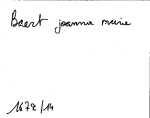 Baert joanna marie
1674/14